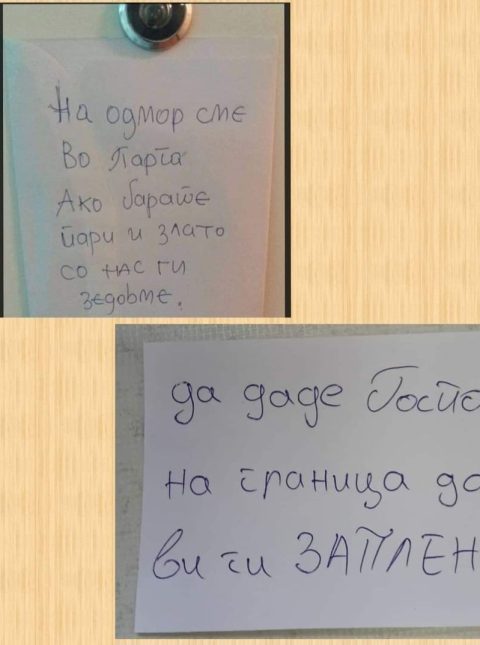 На одмор сме
Во Парга
Ако барате
пари и злато
со нас ги
зедовме.
да даде Госпо
на граница да
ви ги ЗАПЛЕН